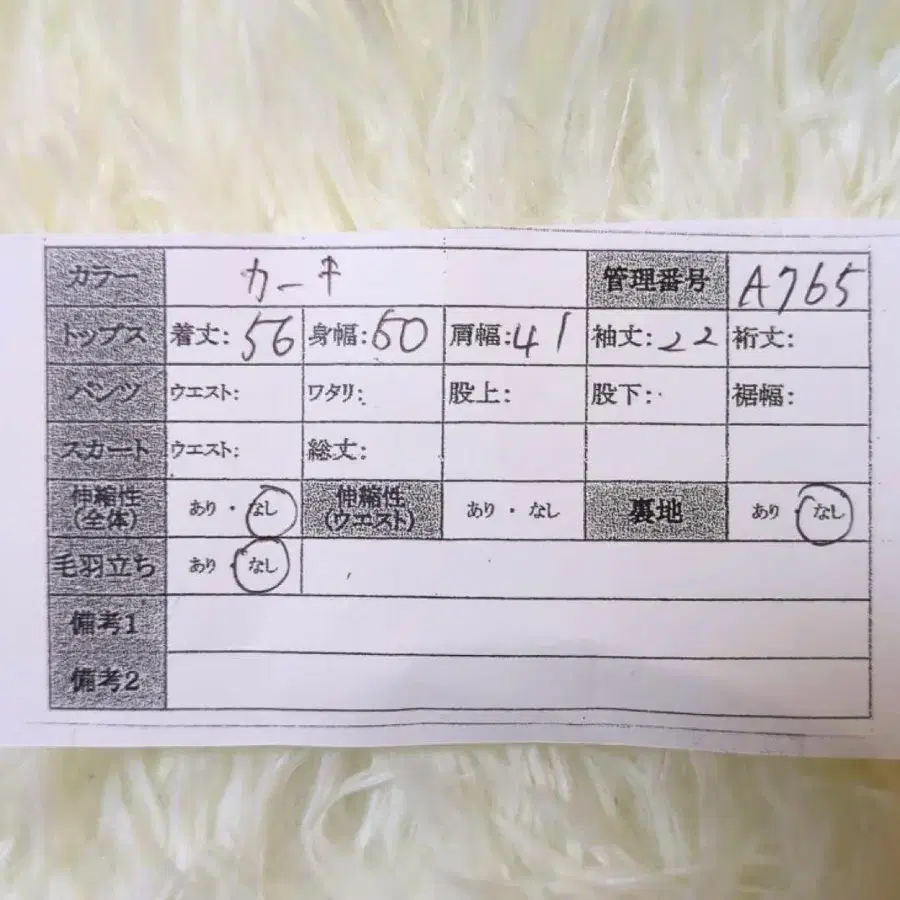 カラー カーキ 管理番号 A765
トップス 着丈: 56 身幅: 肩幅: 41 袖丈: 22 裄丈:
パンツ ウエスト: ワタリ: 股上: 股下: 裾幅:
スカート ウエスト: 総丈:
伸縮性 (全体) あり・なし 伸縮性 (ウエスト) あり・なし 裏地 あり・なし
毛羽立ち あり・なし
備考1
備考2